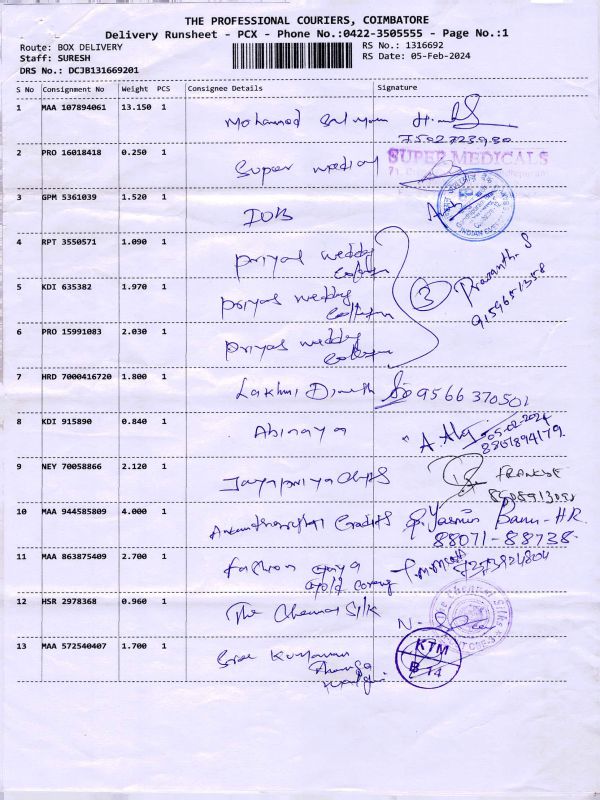 THE PROFESSIONAL COURIERS, COIMBATORE
Delivery Runsheet - PCX - Phone No.:0422-3505555 - Page No.:1
Route: BOX DELIVERY
RS No.: 1316692
Staff: SURESH
RS Date: 05-Feb-2024
DRS No.: DCJB131669201
S No Consignment No Weight PCS Consignee Details Signature
1 MAA 107894061 13.150 1 Mohamed
2 PRO 16018418 0.250 1 Super medical SUPER MEDICALS
3 GPM 5361039 1.520 1 IOB
4 RPT 3550571 1.090 1 priyas wedding
5 KDI 635382 1.970 1 priyas wedding 3 Prasanth. S
9159651358
6 PRO 15991083 2.030 1 priyas wedding
7 HRD 7000416720 1.800 1 Lakhmi Dinesh 9566370501
8 KDI 915890 0.840 1 Abinaya 05-02-2024
9 NEY 70058866 2.120 1 Jayapriya
10 MAA 944585809 4.000 1 Yasmin Banu-HR
88071-88738
11 MAA 863875409 2.700 1 fashion
gold covering
12 HSR 2978368 0.960 1 The Chennai Silk
13 MAA 572540407 1.700 1 Sree Kumaran KTM
B 14